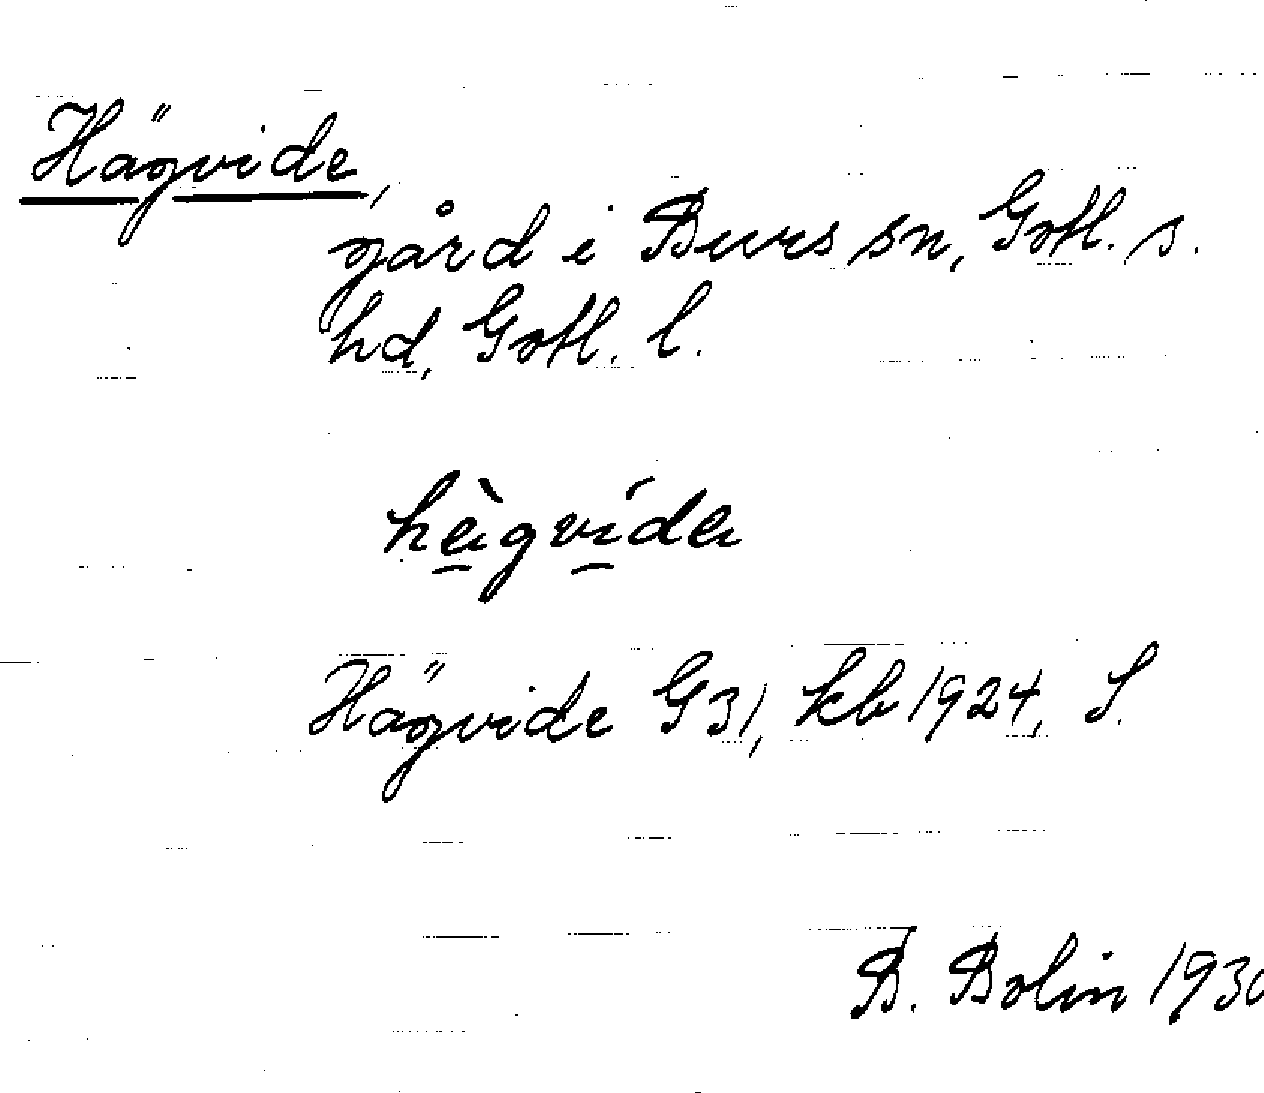 Hägvide,
gård i Burs sn, Gotl. s.
hd, Gotl. l.
hä̀gvídä
Hägvide G 31, kb 1924, S.
B. Bolin 1930